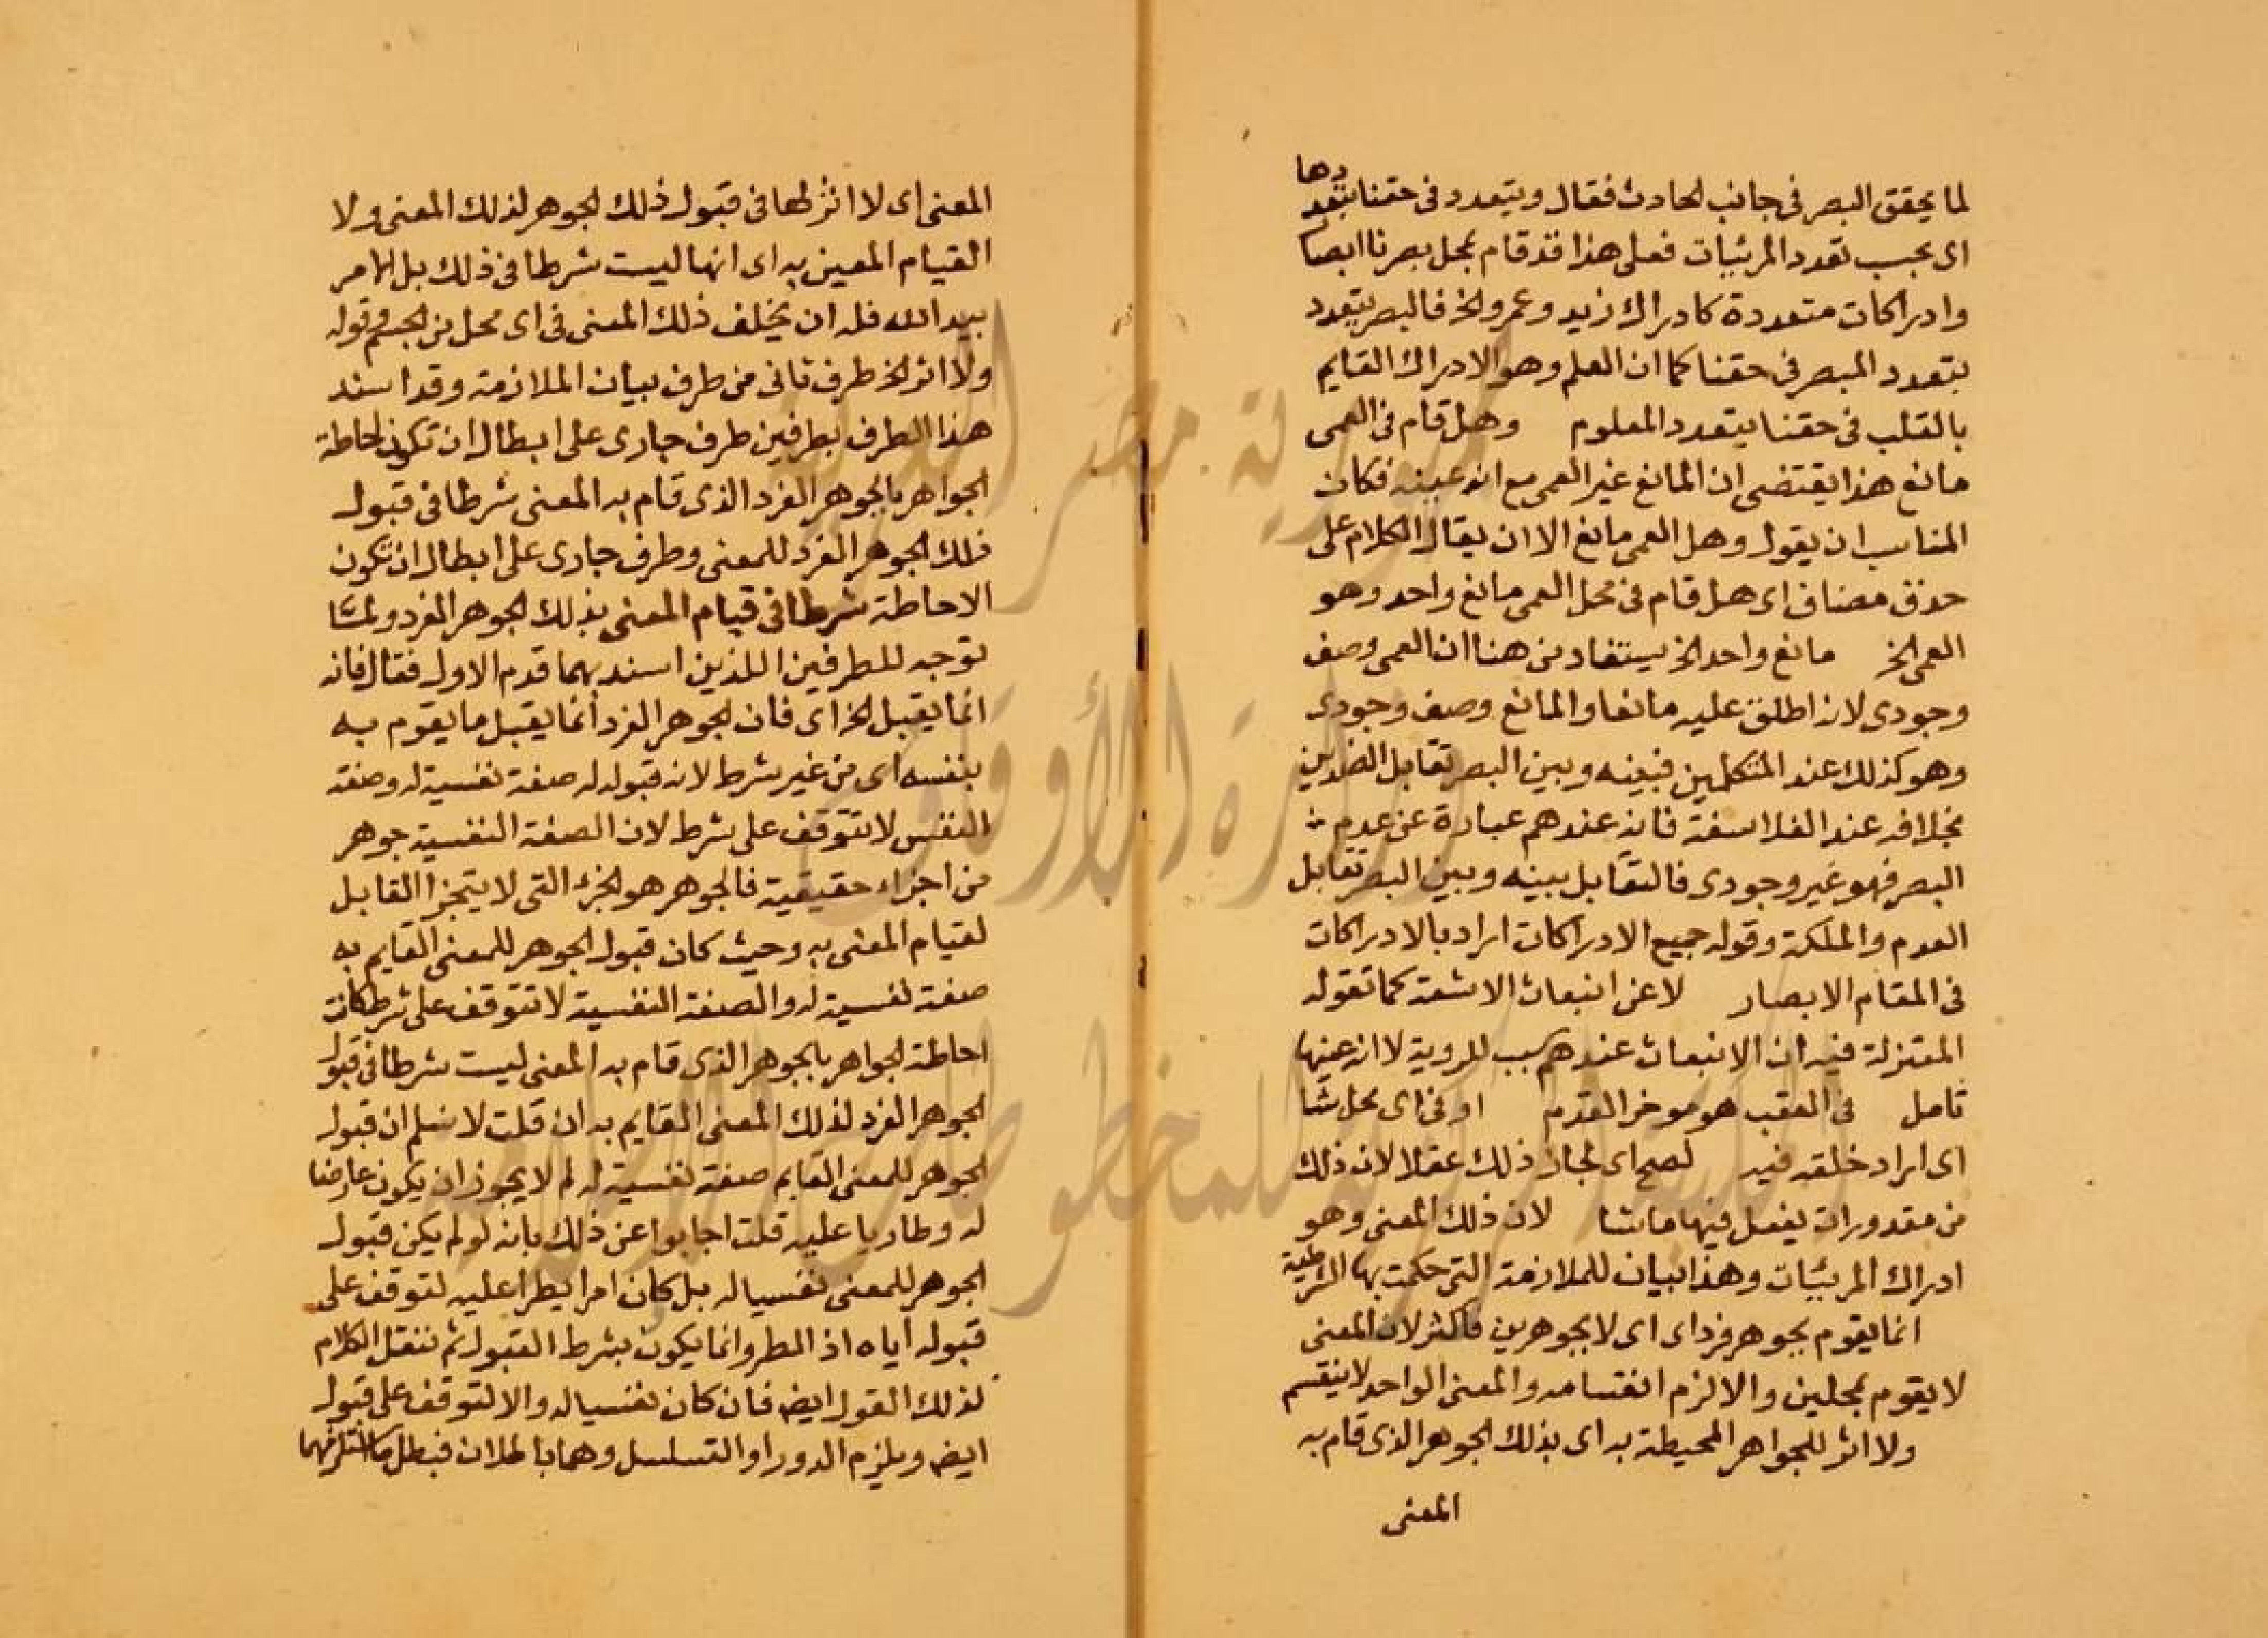 لما يحقق البصر فى جانب الحادث فقال ويتعدد فى حقنا بتعددها
اى بحسب تعدد المرئيات فعلى هذا قد قام بمحل بصرنا ابصار
وادراكات متعددة كادراك زيد وعمرو الخ فالبصر يتعدد
بتعدد المبصر فى حقنا كما ان العلم وهو الادراك القايم
بالقلب فى حقنا يتعدد المعلوم وهل قام فى العمى
مانع هذا يقتضى ان المانع غير العمى مع انه عينه فكان
المناسب ان يقول وهل العمى مانع الا ان يقال الكلام على
حذف مضاف اى هل قام فى محل العمى مانع واحد وهو
العمى الخ مانع واحد الخ يستفاد من هنا ان العمى وصف
وجودى لانه اطلق عليه مانعا والمانع وصف وجودى
وهو كذلك عند المتكلمين فبينه وبين البصر تقابل الضدين
بخلافه عند الفلاسفة فانه عندهم عبارة عن عدم
البصر فهو غير وجودى فالتقابل بينه وبين البصر تقابل
العدم والملكة وقوله جميع الادراكات اراد بالادراكات
فى المقام الابصار لا عن انبعاث الاشعة كما تقوله
المعتزلة فيه ان الانبعاث عندهم سبب للروية لا انه عينها
تامل فى العقب هو موخر القدم او فى اى محل شا
اى اراد خلقه فيه لصح اى لجاز ذلك عقلا لان ذلك
من مقدورات يفعل فيها ما شا لان ذلك المعنى وهو
ادراك المرئيات وهذا بيان للملازمة التى حكمت بها الشرطية
انما يقوم بجوهر فرد اى اى لا بجوهرين فاكثر لان المعنى
لا يقوم بمحلين والا لزم انقسامه والمعنى الواحد لا ينقسم
ولا اثر للجواهر المحيطة به اى بذلك الجوهر الذى قام به
المعنى
المعنى اى لا اثر لها فى قبول ذلك الجوهر لذلك المعنى ولا
القيام المعين به اى انها ليست شرطا فى ذلك بل الامر
بيد الله فله ان يخلف ذلك المعنى فى اى محل من الجسم وقوله
ولا اثر الخ طرف ثانى من طرف بيان الملازمة وقد اسند
هذا الطرف بطرفين طرف جارى على ابطال ان تكون احاطة
الجواهر بالجوهر الفرد الذى قام به المعنى شرطا فى قبول
ذلك الجوهر الفرد للمعنى وطرف جارى على ابطال ان تكون
الاحاطة شرطا فى قيام المعنى بذلك الجوهر الفرد ولما
توجه للطرفين اللذين اسند بهما قدم الاول فقال فانه
انما يقبل الخ اى فان الجوهر الفرد انما يقبل ما يقوم به
بنفسه اى من غير شرط لانه قبوله له صفة نفسية له وصفة
النفس لا تتوقف على شرط لان الصفة النفسية جوهر
من اجزاء حقيقية فالجوهر هو الجزء التى لا يتجزا القابل
لقيام المعنى به وحيث كان قبول الجوهر للمعنى القايم به
صفة نفسية له والصفة النفسية لا تتوقف على شرط كانت
احاطة الجواهر بالجوهر الذى قام به المعنى ليست شرطا فى قبول
الجوهر الفرد لذلك المعنى القايم به ان قلت لا نسلم ان قبول
الجوهر للمعنى القايم صفة نفسية له لم لا يجوز ان يكون عارضا
له وطاريا عليه قلت اجابوا عن ذلك بانه لو لم يكن قبول
الجوهر للمعنى نفسيا له بل كان امرا يطرا عليه لتوقف على
قبوله اياه اذ الطرو انما يكون بشرط القبول ثم ننقل الكلام
لذلك القول ايض فان كان نفسيا له والا لتوقف على قبول
ايض ويلزم الدور او التسلسل وهما باطلان فبطل
جمهورية مصر العربية
وزارة الأوقاف
المكتبة المركزية للمخطوطات الإسلامية